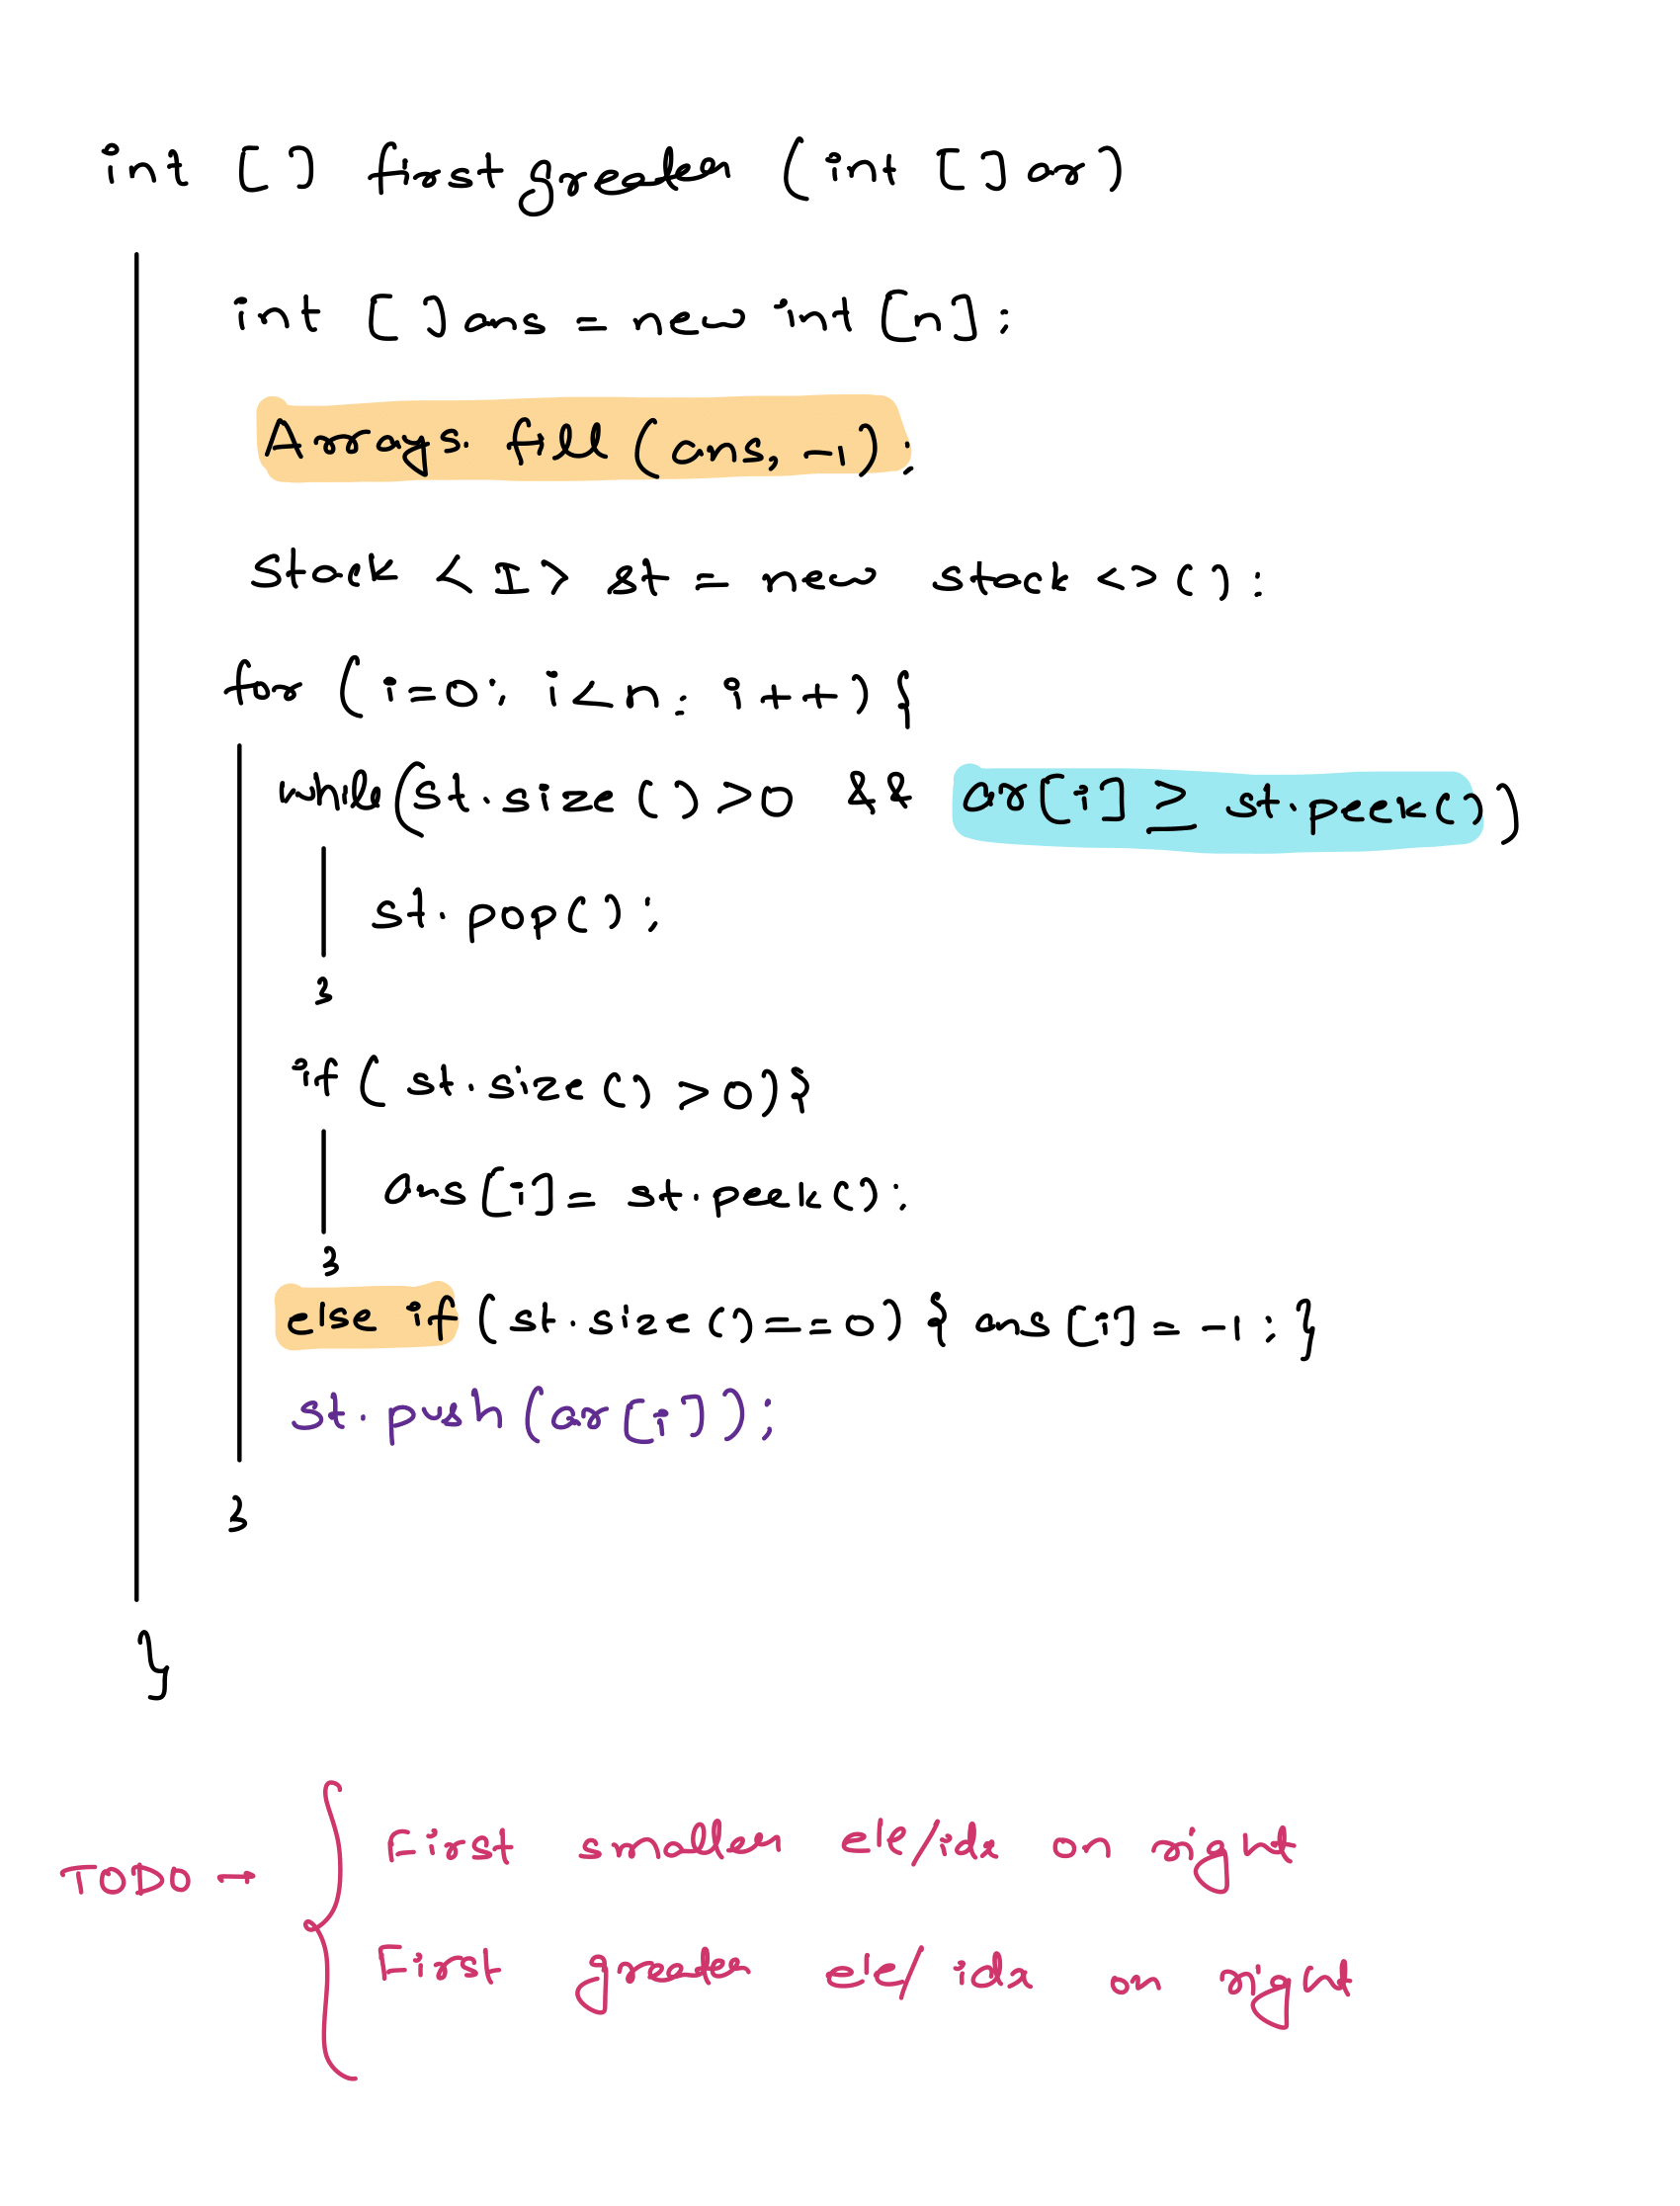 int [] firstgreater (int [] ar)
int [] ans = new int [n];
Arrays. fill (ans, -1);
stack <I> st = new stack <>();
for (i=0; i<n; i++) {
while(st.size() >0 && ar[i] ≥ st.peek())
st.pop();
}
if ( st.size() >0) {
ans [i] = st.peek();
}
else if (st.size()==0) { ans [i] = -1; }
st.push(ar[i]);
}
}
TODO →
{
First smaller ele/idx on right
First greater ele/ idx on right